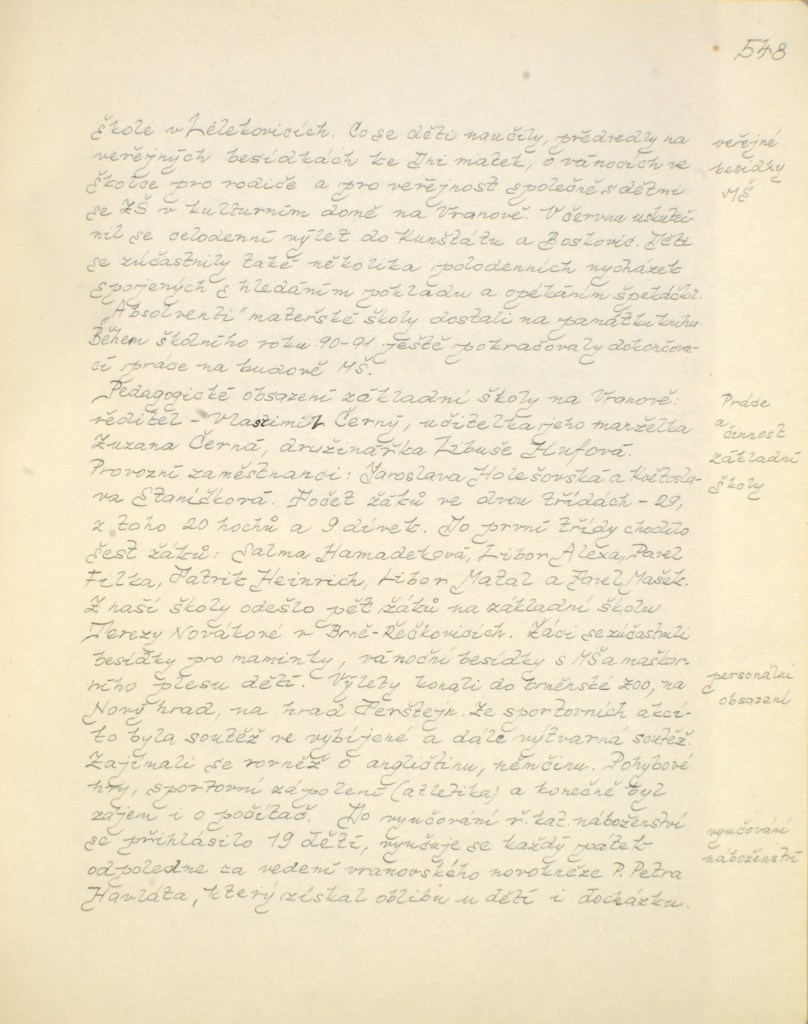 548
škole v Lelekovicích. Co se děti naučily, předvedly na
veřejných besídkách ke Dni matek, o vánocích ve
školce pro rodiče a pro veřejnost společně s dětmi
se ZŠ v kulturním domě na Vranově. V červnu uskuteč-
nil se celodenní výlet do Kunštátu a Boskovic. Děti
se zúčastnily také několika polodenních vycházek
spojených s hledáním pokladu a opékáním špekáčků.
„Absolventi" mateřské školy dostali na památku knihu.
Během školního roku 90-91 ještě pokračovaly dokončova-
cí práce na budově MŠ.
Pedagogické obsazení základní školy na Vranově:
ředitel - Vlastimil Černý, učitelka jeho manželka
Zuzana Černá, družinářka Libuše Hufová.
Provozní zaměstnanci: Jaroslava Holešovská a Květosla-
va Staníčková. Počet žáků ve dvou třídách - 29,
z toho 20 hochů a 9 dívek. Do první třídy chodilo
šest žáků: Salma Hamadeková, Libor Alexa, Pavel
Filka, Patrik Heinrich, Libor Matal a Pavel Mašek.
Z naší školy odešlo pět žáků na základní školu
Terezy Novákové v Brně-Řečkovicích. Žáci se zúčastnili
besídky pro maminky, vánoční besídky s MŠ a maškar-
ního plesu dětí. Výlety konali do brněnské ZOO, na
Nový hrad, na hrad Perštejn. Ze sportovních akcí-
to byla soutěž ve vybíjené a dále výtvarná soutěž.
Zajímali se rovněž o angličtinu, němčinu. Pohybové
hry, sportovní zápolení (atletika) a konečně byl
zájem i o počítač. Do vyučování ř. kat. náboženství
se přihlásilo 19 dětí, vyučuje se každý pátek
odpoledne za vedení vranovského novokněze P. Petra
Havláta, který získal oblibu u dětí i docházku.
veřejné
besídky
MŠ
Práce
a
činnost
základní
školy
personální
obsazení
vyučování
náboženství